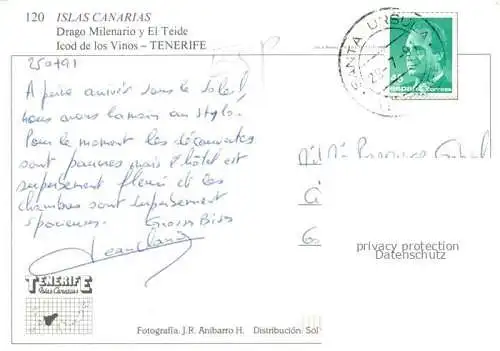 120 ISLAS CANARIAS
Drago Milenario y El Teide
Icod de los Vinos – TENERIFE
SANTA URSULA
ESPAÑA correos
A peine arrivés sous le soleil
nous avons la main au stylo.
Pour le moment les découvertes
sont pauvres mais l'hôtel est
superbement fleuri et les
chambres sont superbement
spacieuses. Gros Bises
Jean Claude
privacy protection
Datenschutz
TENERIFE
Islas Canarias
Fotografía: J.R. Anibarro H. Distribución: Sol